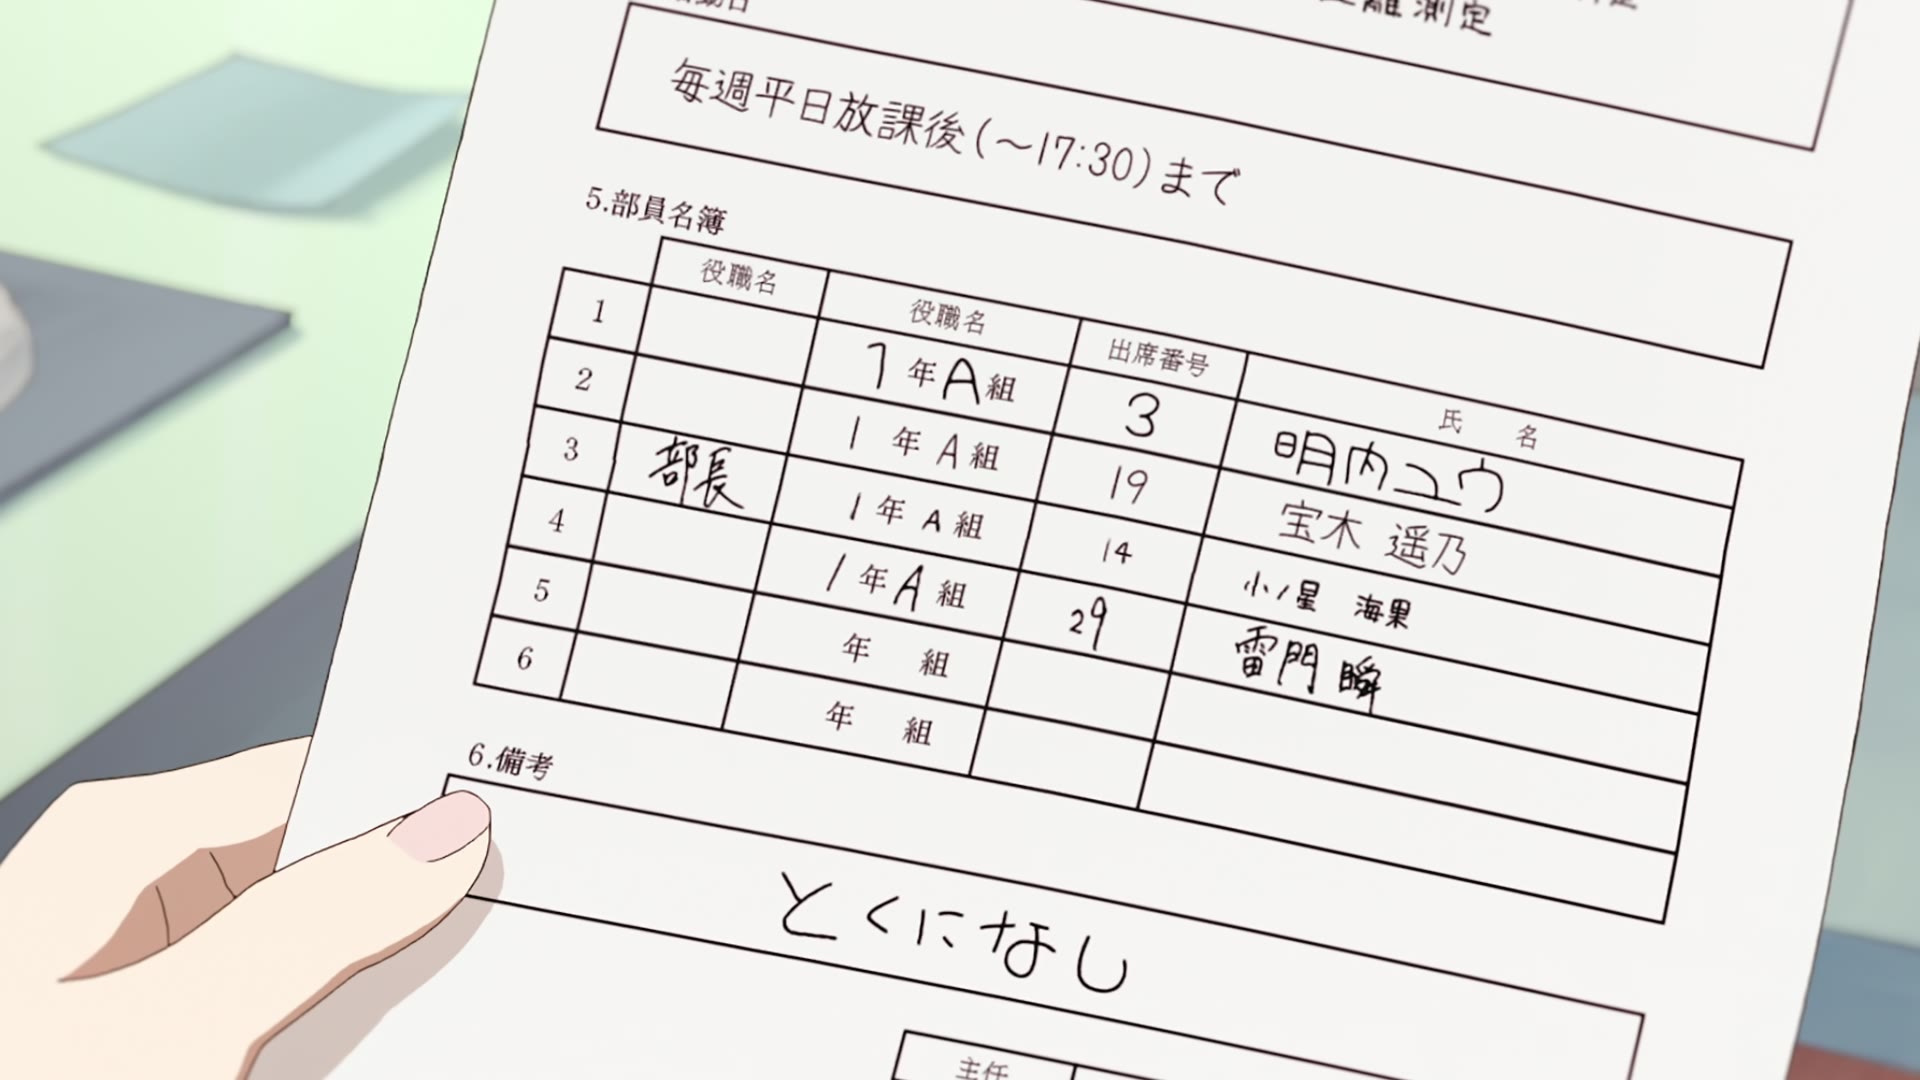 離測定
毎週平日放課後(～17:30)まで
5.部員名簿
役職名 役職名 出席番号 氏 名
1 1年A組 3 明内ユウ
2 1年A組 19 宝木 遥乃
3 部長 1年A組 14 小ノ星 海果
4 1年A組 29 雷門 瞬
5 年 組
6 年 組
6.備考
とくになし
主任